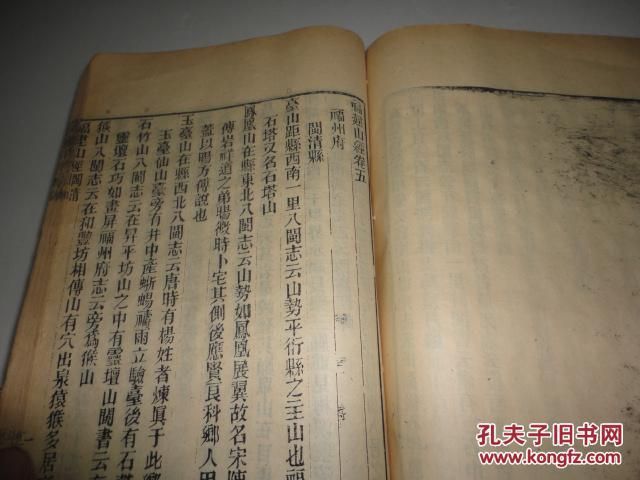 福建山經卷五
福州府
閩清縣
臺山距縣西南一里八閩志云山勢平衍縣之主山也
石塔又名石塔山
鳳凰山在縣東北八閩志云山勢如鳳凰展翼故名宋陳
傅岩祥道之弟暘微時卜宅其側後應賢良科鄉人
蓋以賜方傅說也
玉臺山在縣西北八閩志云唐時有楊姓者煉眞于此鄉
玉臺仙山臺旁有井中產蜥蜴禱雨立驗臺後有石
石竹山八閩志云在昇平坊山之中有靈壇山閩書云
靈壇石巧如畫屏福州府志云旁為猴山
猴山八閩志云在和豐坊相傳山有穴出泉猿猴多居
福建山經閩清
一
孔夫子旧书网
www.kongfz.com